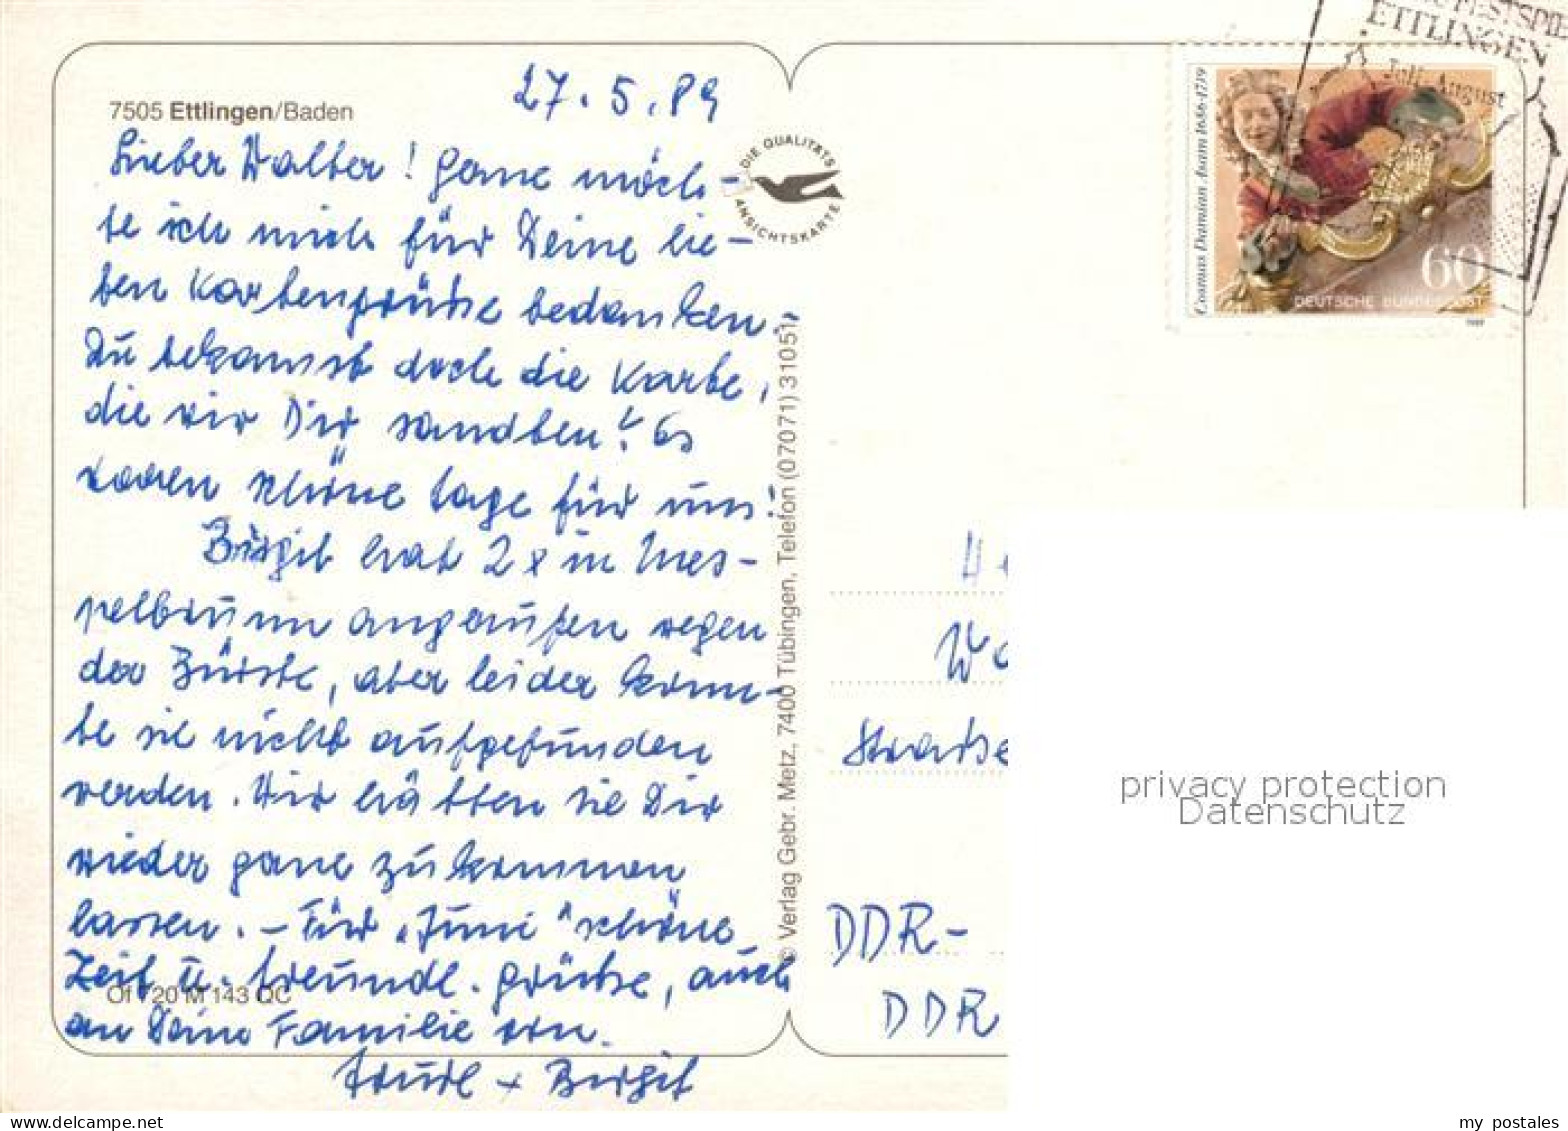 7505 Ettlingen/Baden
27.5.89
Lieber Walter! Gerne möch-
te ich mich für Deine lie-
ben Kartengrüße bedanken.-
Du bekamst doch die Karte,
die wir Dir sandten? Es
waren schöne Tage für uns!
Birgit hat 2x in Mes-
pelbrunn angerufen wegen
der Bürste, aber leider konn-
te sie nicht aufgefunden
werden. Wir hätten sie Dir
wieder gerne zukommen
lassen. - Für "Juni" schöne
Zeit u. freundl. Grüße, auch
an Deine Familie von
Traudl + Birgit
Of 720 M 143 QC
DIE QUALITÄTS
ANSICHTSKARTE
© Verlag Gebr. Metz, 7400 Tübingen, Telefon (07071) 31051
ETTLINGEN
Juli-August
Cosmas Damian Asam 1686-1739
60
DEUTSCHE BUNDESPOST
Straße
DDR-
DDR
privacy protection
Datenschutz
my postales